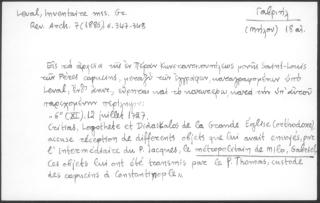 Laval, Inventaire mss. Gr.
Rev. Arch. 7 (1886) σ. 347-348
Γαβριὴλ
(Μήλου) 18 αἰ.
Εἰς τὰ ἀρχεῖα τῶν ἐν Πέραν Κωνσταντινουπόλεως μονῆς Saint-Louis
τῶν Pères capucins, μεταξὺ τῶν ἐγγράφων, καταγραφομένων ὑπὸ
Laval, ἔνθ' ἄνω, εὕρηται καὶ τὸ κατωτέρω, κατὰ τὴν ὑπ' αὐτοῦ
παρεχομένην περίληψιν:
- 6° (XI). 12 juillet 1727.
Critias, Logothète et Didaskalos de la Grande Église (orthodoxe)
accuse réception de différents objets que lui avait envoyés, par
l'intermédiaire du P. Jacques, le métropolitain de Milo, Gabriel.
Ces objets lui ont été transmis par le P. Thomas, custode
des capucins à Constantinople».